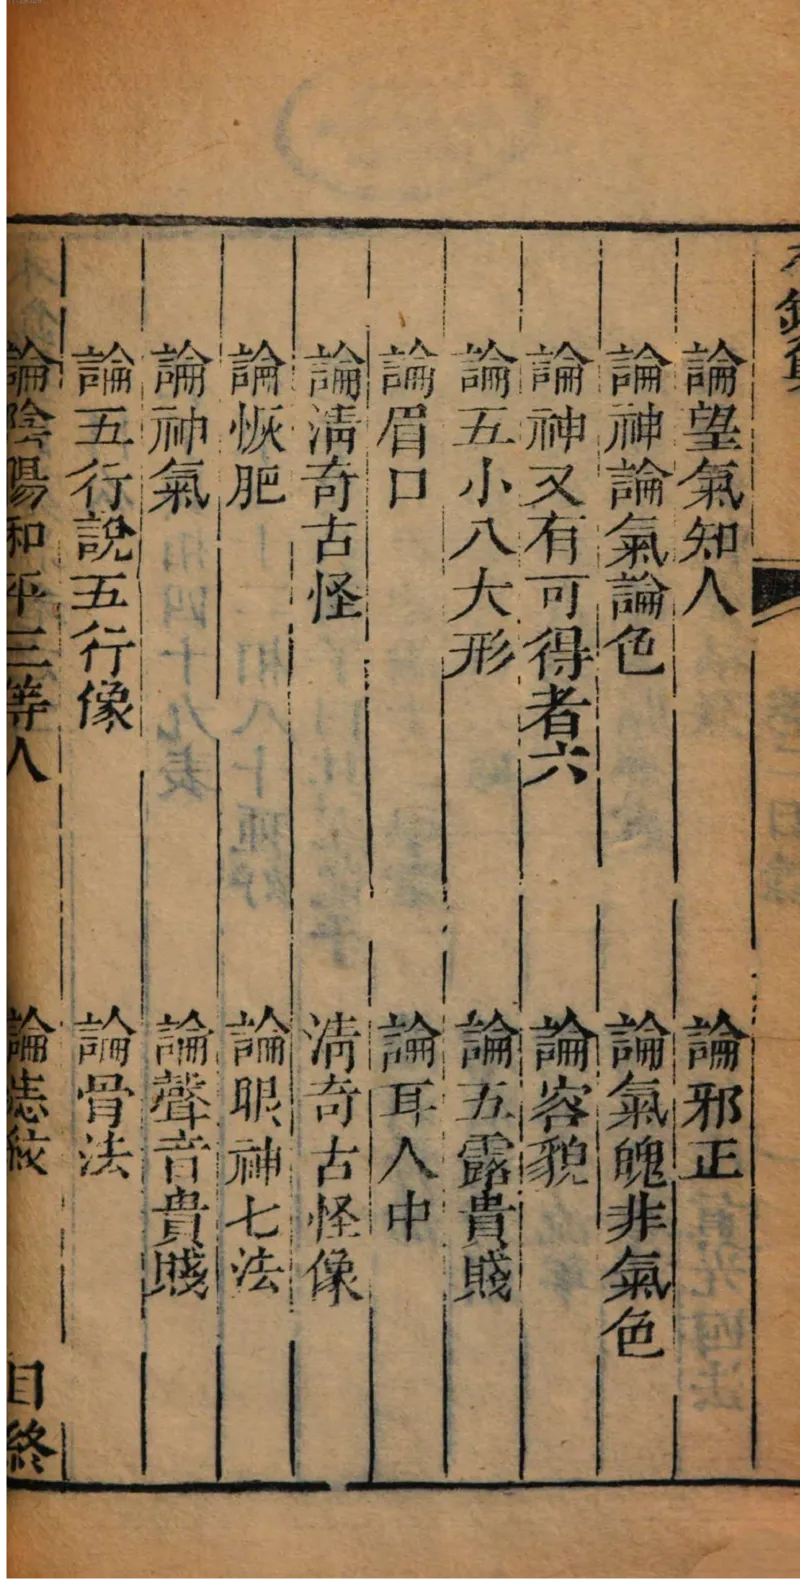 論望氣知人 論邪正
論神論氣論色 論氣魄非氣色
論神又有可得者六 論容貌
論五小八大形 論五露貴賤
論眉口 論耳人中
論清奇古怪 清奇古怪像
論恢肥 論眼神七法
論神氣 論聲音貴賤
論五行說五行像 論骨法
論陰陽和平三等人 論志紋 目終